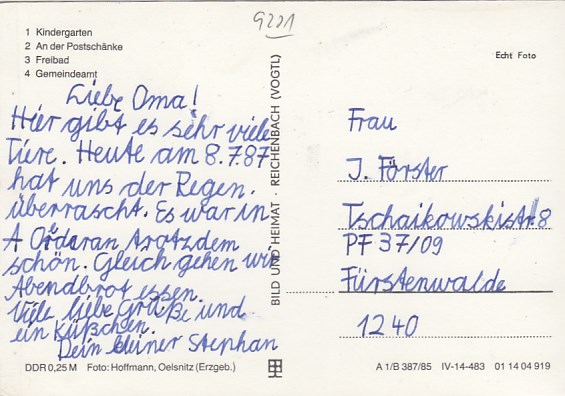 9221
1 Kindergarten
2 An der Postschänke
3 Freibad
4 Gemeindeamt
Echt Foto
Liebe Oma!
Hier gibt es sehr viele
Tiere. Heute am 8.7.87
hat uns der Regen.
überrascht. Es war in
trotzdem
schön. Gleich gehen wir
Abendbrot essen.
Viele liebe Grüße und
ein Küßchen.
Dein kleiner Stephan
BILD UND HEIMAT · REICHENBACH (VOGTL)
Frau
J. Förster
Tschaikowskistr. 8
PF 37/09
Fürstenwalde
1240
DDR 0,25 M Foto: Hoffmann, Oelsnitz (Erzgeb.)
A 1/B 387/85 IV-14-483 01 14 04 919